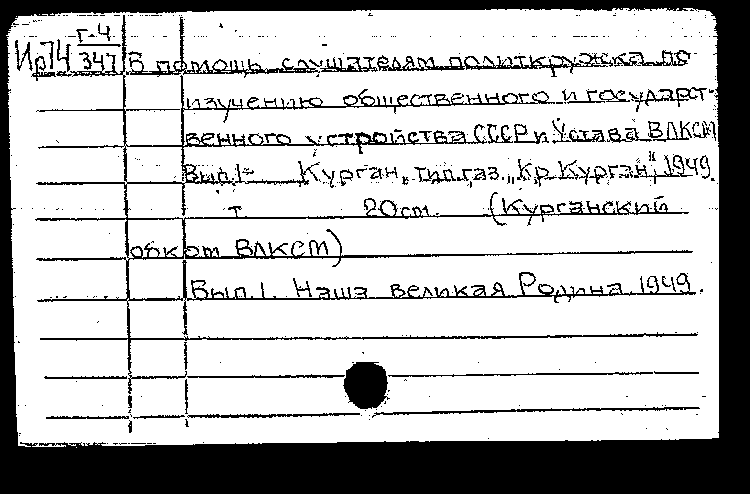 Г-4
Ир74 347 В помощь слушателям политкружка по
изучению общественного и государст-
венного устройства СССР и Устава ВЛКСМ
Вып.1- Курган, тип.газ. „Кр. Курган", 1949.
т. 20см. (Курганский
обком ВЛКСМ)
Вып.1. Наша великая Родина 1949.